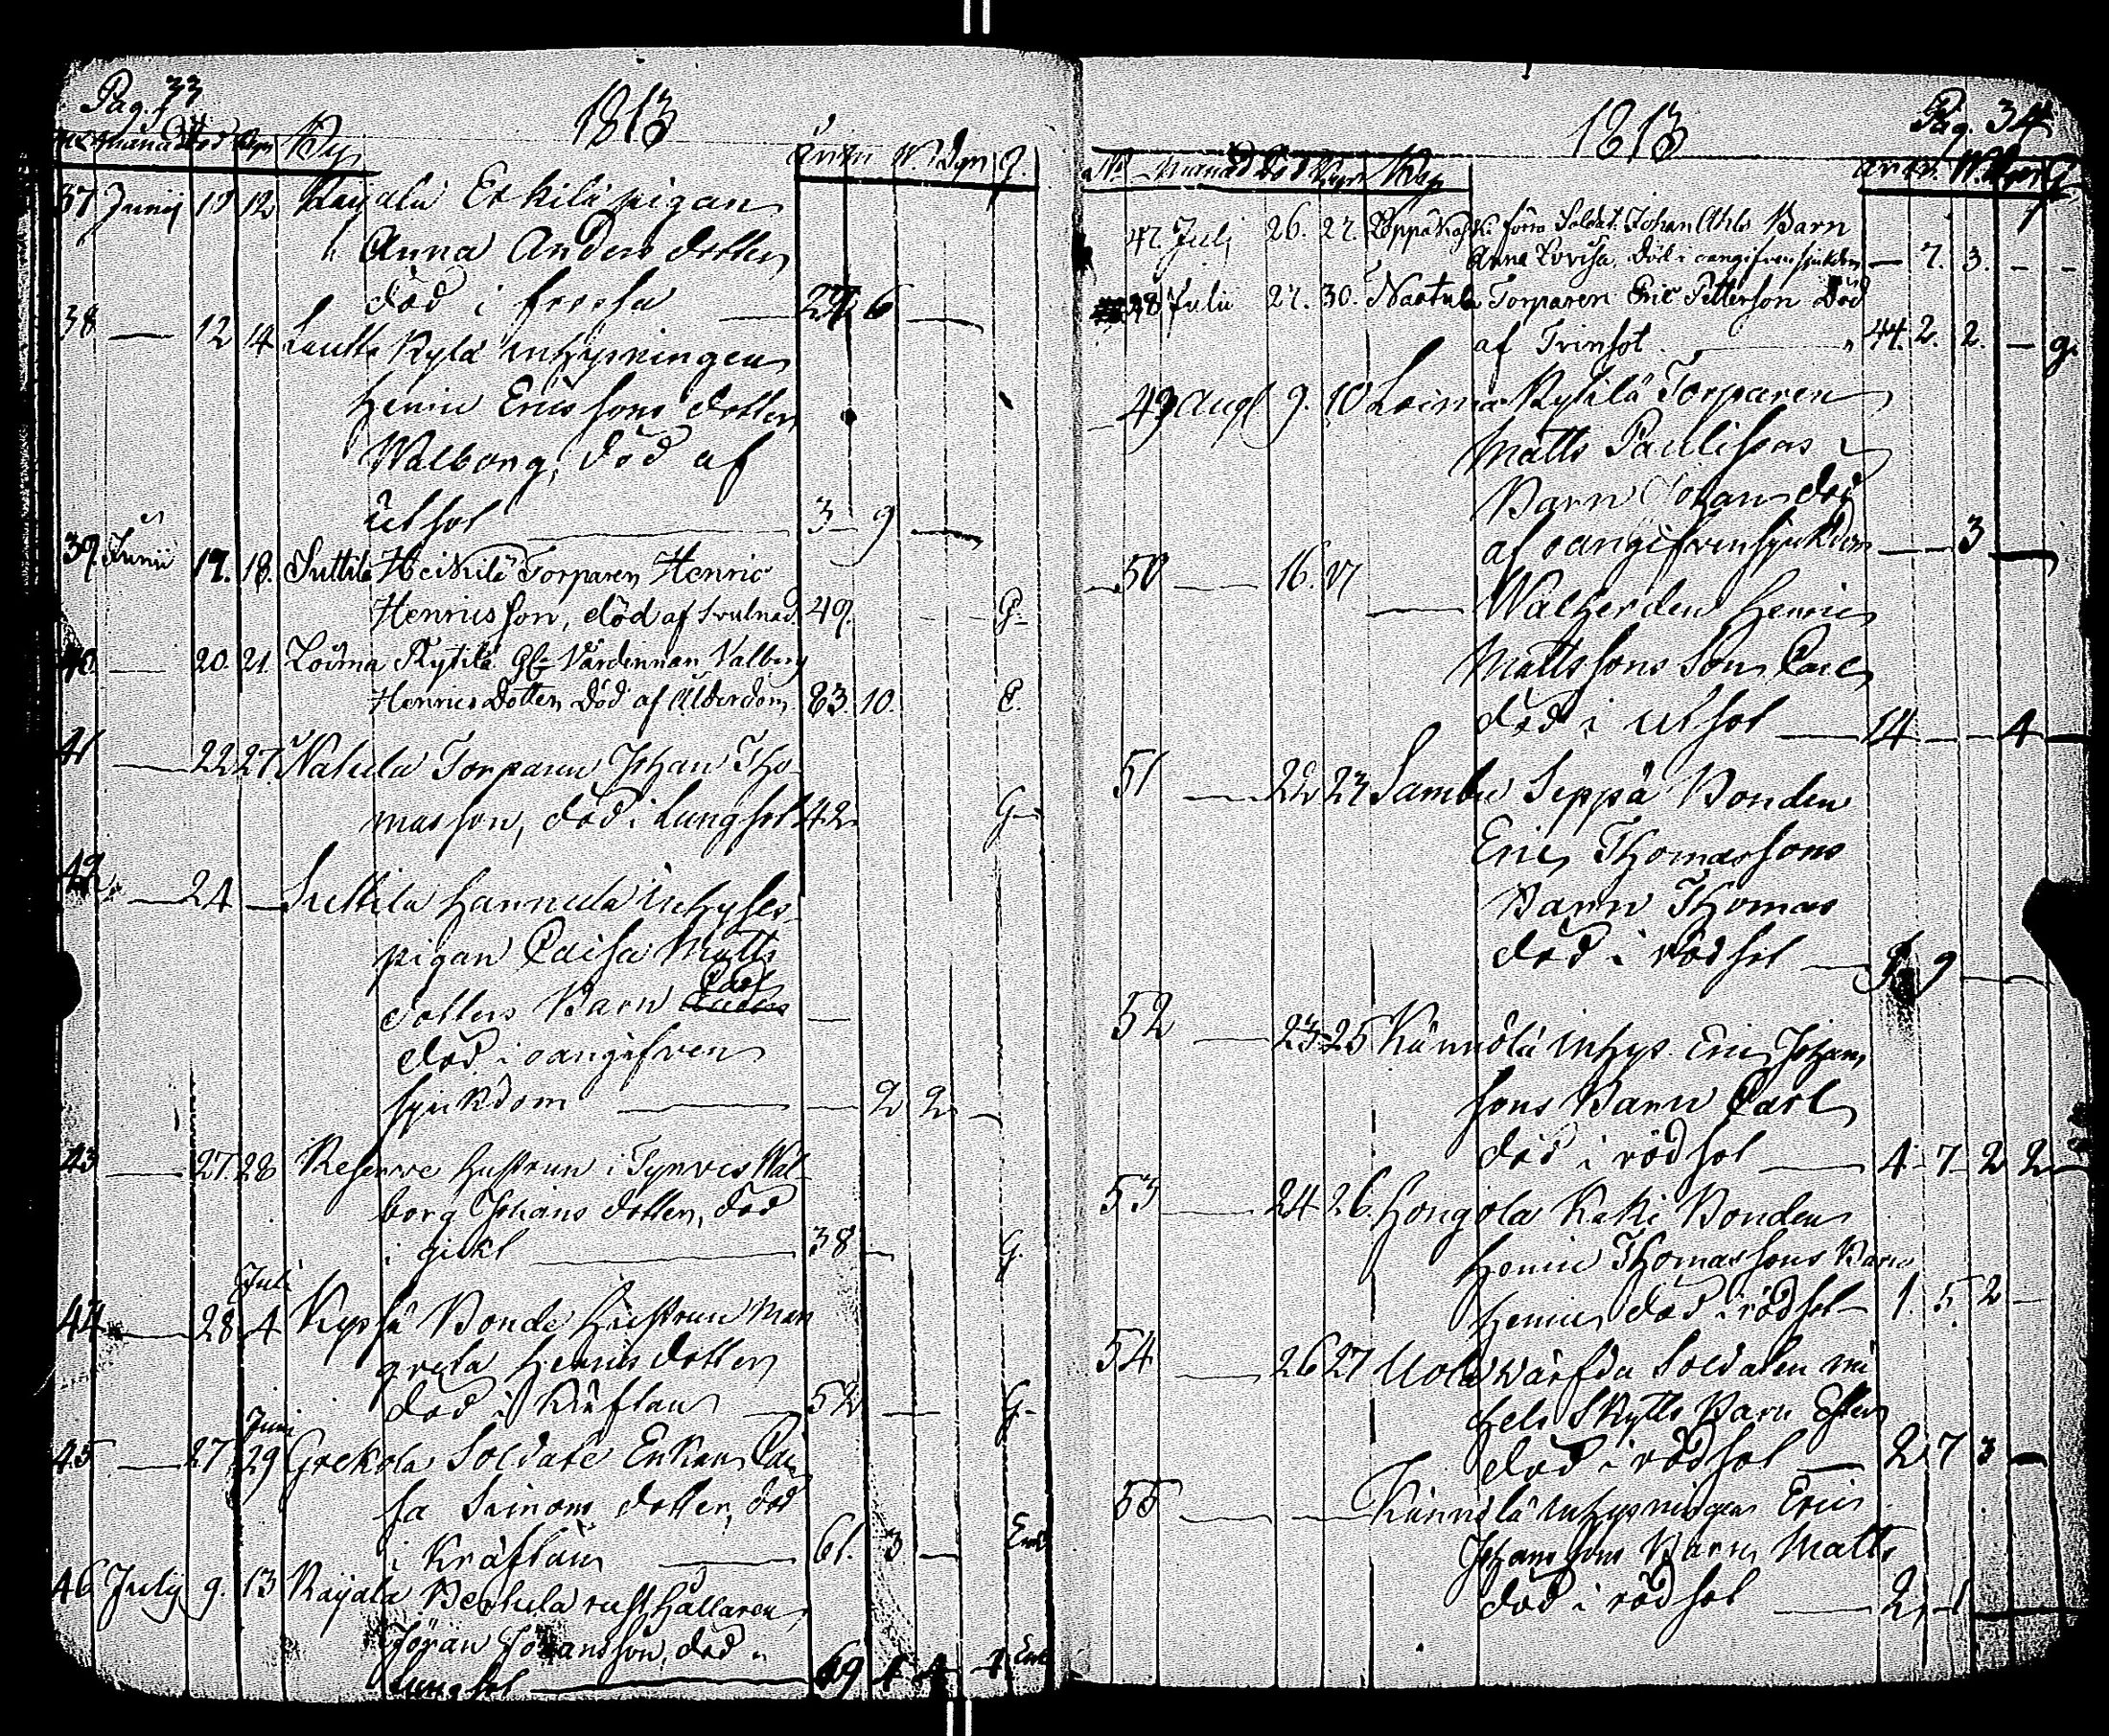 Pag. 33
1813
Månad Död Begr By
Åner M. W. Dgr G.
37 Junij 10 12 Rayala Erkilä pigan
Anna Anders dotter
död i frossa 27 6 —
38 — 12 14 Lautta Kylä inhysningen
Henric Ericssons dotter
Walborg, död af
utsot 3 9 —
39. Junii 17. 18. Suttila Heikilä Torparen Henric
Henricsson, död af Svulnad. 49. G.
40. — 20. 21. Loima Kytilä Gl. Värdinnan Valborg
Henrics Dotter, död af Ålderdom 83. 10. E.
41 — 22 27. Natula Torparen Johan Tho
masson, död i lungsot 42 G
42 — 24 — Suttila Hannula inhyses
pigan Caisa Matts
dotters Barn Carl —
död i oangifven
sjukdom — 2 2 —
43 — 27. 28 hustrun i Wal
borg Johans dotter, död
i gikt — 38 — G.
Juli
44 — 28 4 Kypsä Bonde hustrun Mar
greta Henrics dotter
död i Kräftan — 52 — G
Juni
45 — 27 29 Grekola Soldate Enkan Cai
sa Simons dotter, död
i Kräftan — 61. 3 — Enk
46 July 9. 13 Rayala rusthållaren
Jöran Johansson, död i
lungsot — 69 1 4 — Enk
Pag. 34
1813
No Månad Död Begr By
åner. M. W. Dgr G
47. Julj 26. 27. förra Soldat. Johan Ahls Barn
Anna Lovisa. Död i oangifven sjukdom — 7. 3. — —
48 Julii 27. 30. Naatula Torparen Eric Petterson Död
af Tvinsot. — 44. 2. 2. — g.
49 Augl 9. 10 Loima Kytilä Torparen
Matts Paulssons
Barn Johan död
af oangifven sjukdom — — 3 —
50 — 16. 17
— Walherden Henric
Mattssons Son Carl
död i utsot — 14 — — 4 —
51 — 22 23 Sambu Seppä Bonden
Eric Thomassons
Barn Thomas
död i rödsot — 9 —
52 — 23 25 Kännölä inhys. Eric Johans
sons Barn Carl
död i rödsot — 4 7 2 2
53 — 24 26. Hongola Kaki Bonden
Henric Thomassons Barn
Henric död i rödsot — 1. 5. 2 —
54 — 26 27 Uola värfda Soldaten mi
chels Skytts Barn Ester
död i rödsot — 2 7 3 —
55 — — Kännölä inhysningen Eric
Johanssons Barn Matts
död i rödsot — 2, 1 —